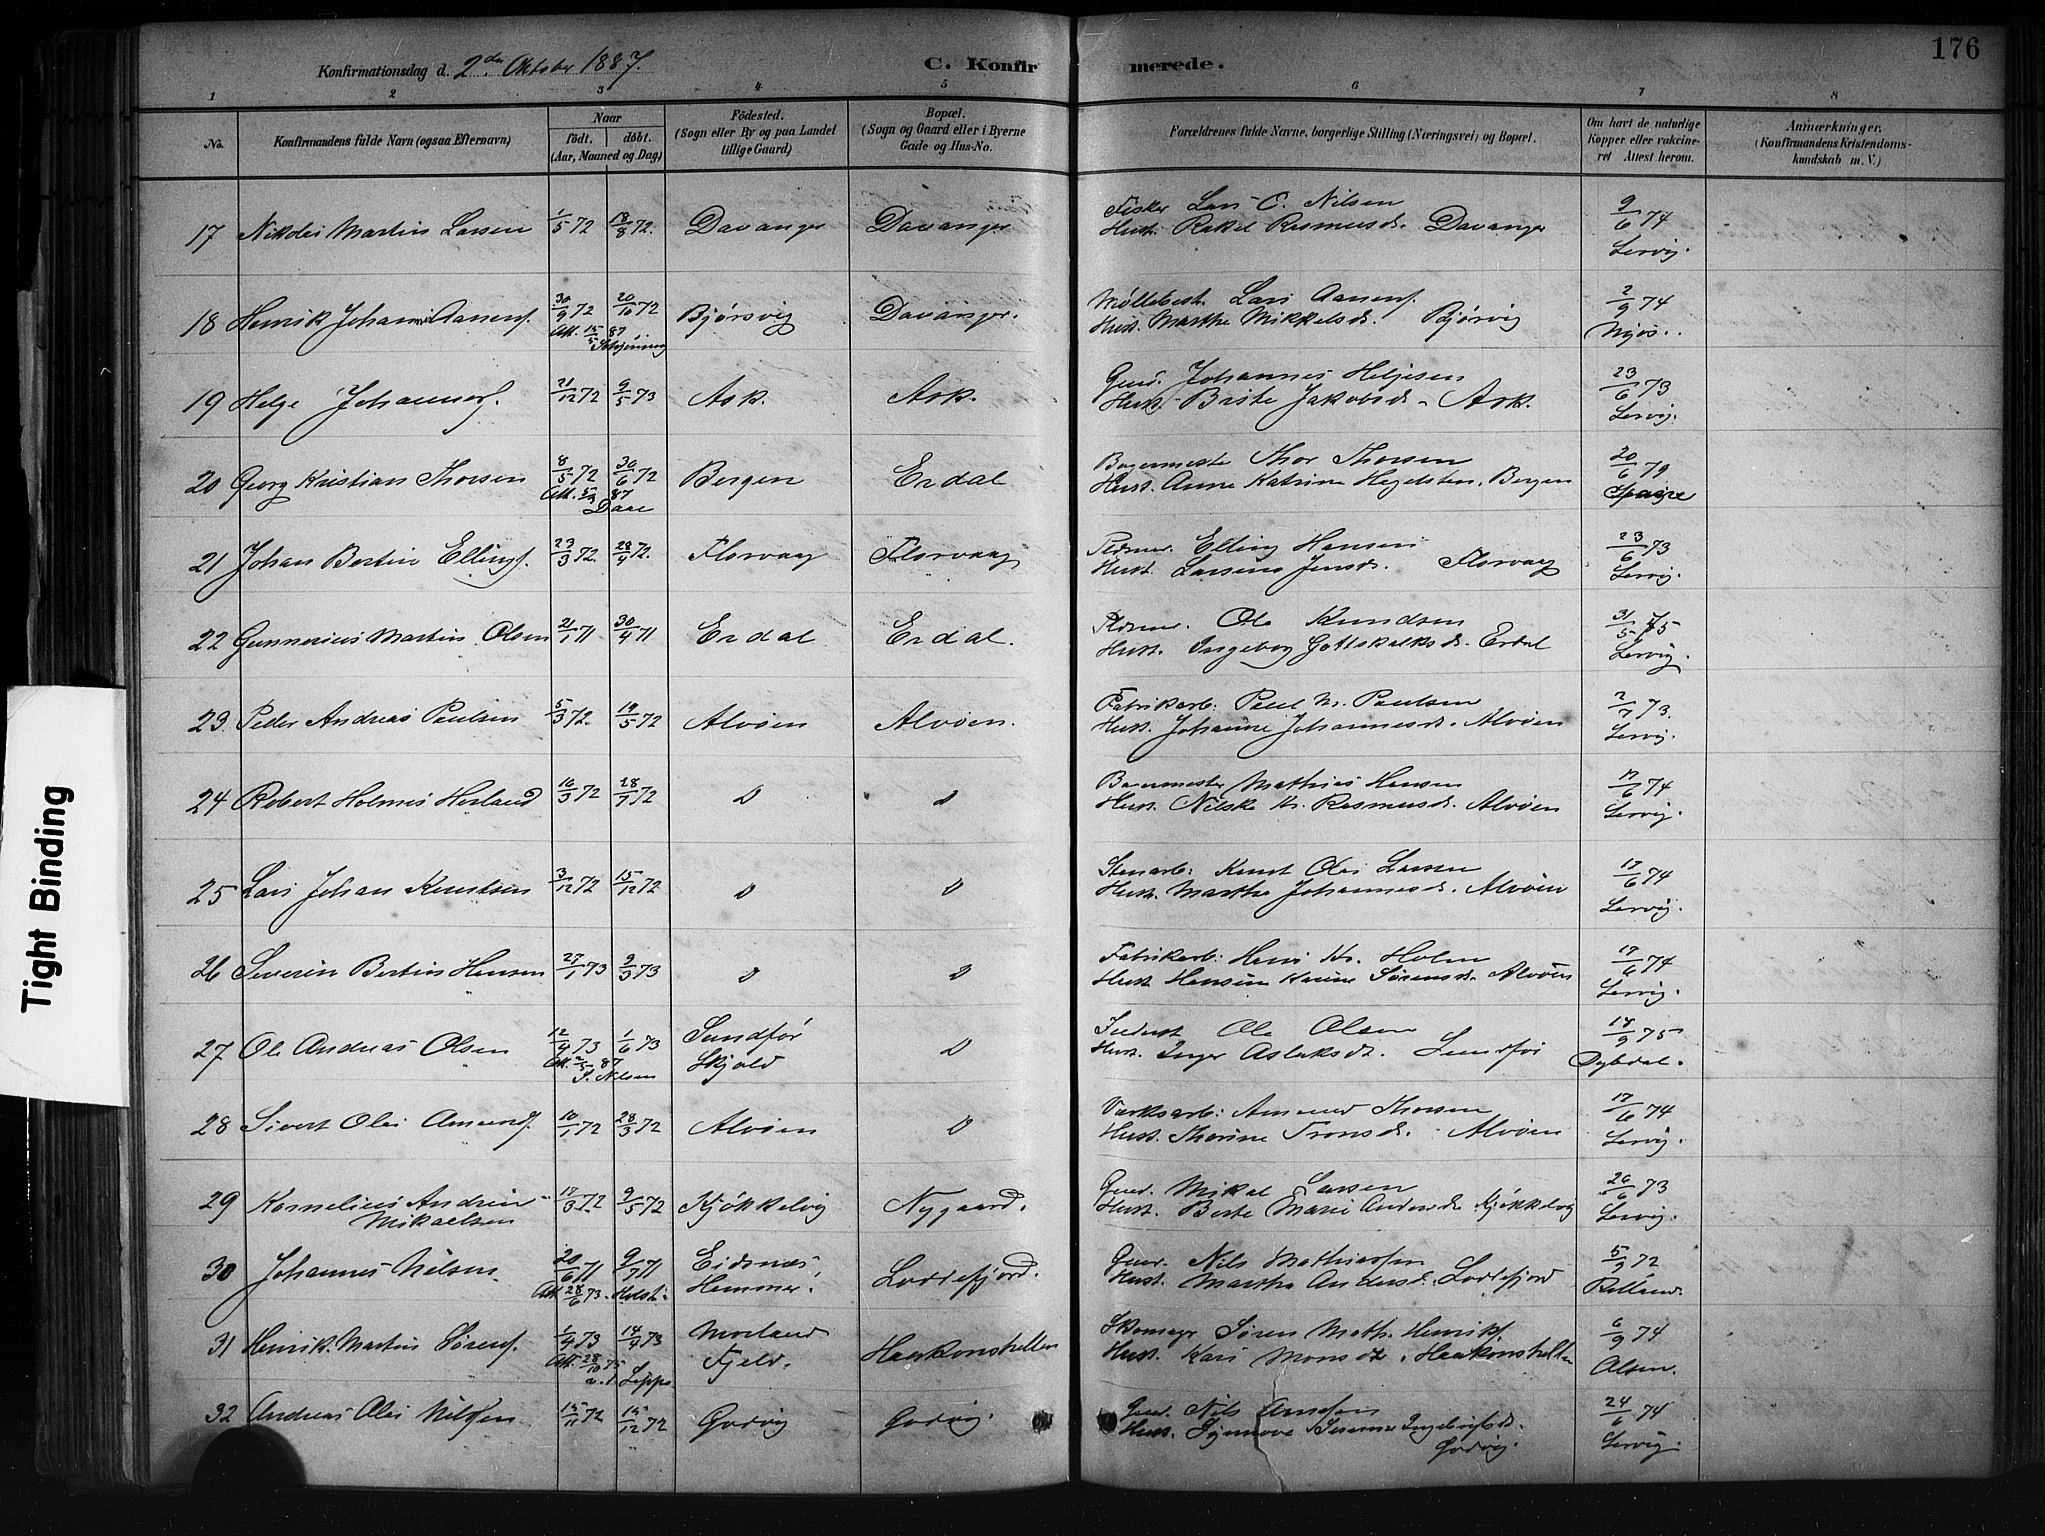 Konfirmationsdag d. 2den Oktober 1887. C. Konfirmerede. 176
1 2 3 4 5 6 7 8
No. Konfirmandens fulde Navn (ogsaa Efternavn) Naar födt. döbt. (Aar, Maaned og Dag) Födested. (Sogn eller By og paa Landet tillige Gaard) Bopæl. (Sogn og Gaard eller i Byerne Gade og Hus-No. Forældrenes fulde Navne, borgerlige Stilling (Næringsvei) og Bopæl. Om havt de naturlige Kopper eller vakcineret Attest herom. Anmærkninger. (Konfirmandens Kristendomskundskab m. V.)
17 Nikolai Martin Larsen 1/5 72 18/8 72. Davanger Davanger Fisker Lars C. Nilsen 9/6 74
Hust. Rakel Rasmusd. Davanger Lervig.
18 Henrik Johan Aanens. 30/9 72 20/10 72 Bjørsvig Davanger. Møllebest. Lars Aanens. 2/9 74
Att. 15/5 87 Hust. Marthe Mikkelsd. Bjørsvig
19 Helge Johannes. 21/12 72 9/5 73 Ask. Ask. Gmd. Johannes Helgesen 23/6 73
Hust. Brite Jakobsd. Ask. Lervig.
20 Georg Kristian Thorsen 8/5 72 30/6 72 Bergen Erdal Bagermester Thor Thorsen 20/6 79
Att. 5/3 87 Daae Hust. Anne Katrine Hegelsten, Bergen
21 Johan Bertin Ellings. 23/3 72. 28/4 72. Florvaag Florvaag Pldsmd. Elling Hansen 23/6 73
Hust. Larsine Jensd. Florvaag Lervig.
22 Gunnerius Martin Olsen 21/1 71 30/4 71 Erdal Erdal. Pldsmd. Ole Knudsen 31/5 75
Hust. Ingeborg Gottskalksd. Erdal Lervig.
23. Peder Andreas Paulsen 5/3 72. 19/5 72 Alvøen Alvøen. Fabrikarb. Paul M. Paulsen 2/7 73.
Hust. Johanne Johannesd. Alvøen Lervig.
24 Robert Holmes Herland 16/3 72 28/7 72 D D Bagermester Mathias Hansen 17/6 74
Hust. Nilske Kr. Rasmusd. Alvøen Lervig.
25 Lars Johan Knutsen 3/12 72 15/12 72 D D Stenarb. Knut Olai Larsen 17/6 74
Hust. Martha Johannesd. Alvøen Lervig.
26 Severin Bertin Hansen 27/1 73 9/3 73 D D Fabrikarb. Hans Kr. Holm 17/6 74
Hust. Hansine Karine Sørensd. Alvøen Lervig.
27 Ole Andreas Olsen 12/4 73 1/6 73 Sundfør D Inderst Ole Olsen 18/9 75
Att. 2/5 87 S. Nilsen Skjold Hust. Inger Aslaksdt. Sundfør Dybdal.
28 Sivert Olai Amunds. 10/1 72 28/3 72 Alvøen D Værksarb. Amund Thorsen 17/6 74
Hust. Thorine Tronsd. Alvøen Lervig.
29 Kornelius Andrias 17/3 72 9/5 72 Kjøkkelvig Nygaard. Gmd. Mikal Larsen 26/6 73
Mikaelsen Hust. Berte Marie Andersd. Kjøkkelvig Lervig.
30 Johannes Nilsen 20/6 71 9/7 71 Eidsnæs Loddefjord. Gmd. Nils Mathiassen 5/9 72
Att. 28/6 73. Holst. Hammer. Hust. Martha Andersd. Loddefjord
31 Henrik Martin Sørens. 1/4 73 14/4 73 Morland Haakonshellen Skomager Søren Math. Henriks. 6/9 74
Att. 28/10 75 Fjeld. Hust. Kari Monsdt. Haakonshellen Olsen.
32 Andreas Olai Nilsen 15/11 72 15/12 72 Godvig Godvig. Gmd. Nils Arnesen 24/6 74
Hust. Synnove Susanne Ingebrigtsdt. Lervig.
Godvig.
Tight Binding